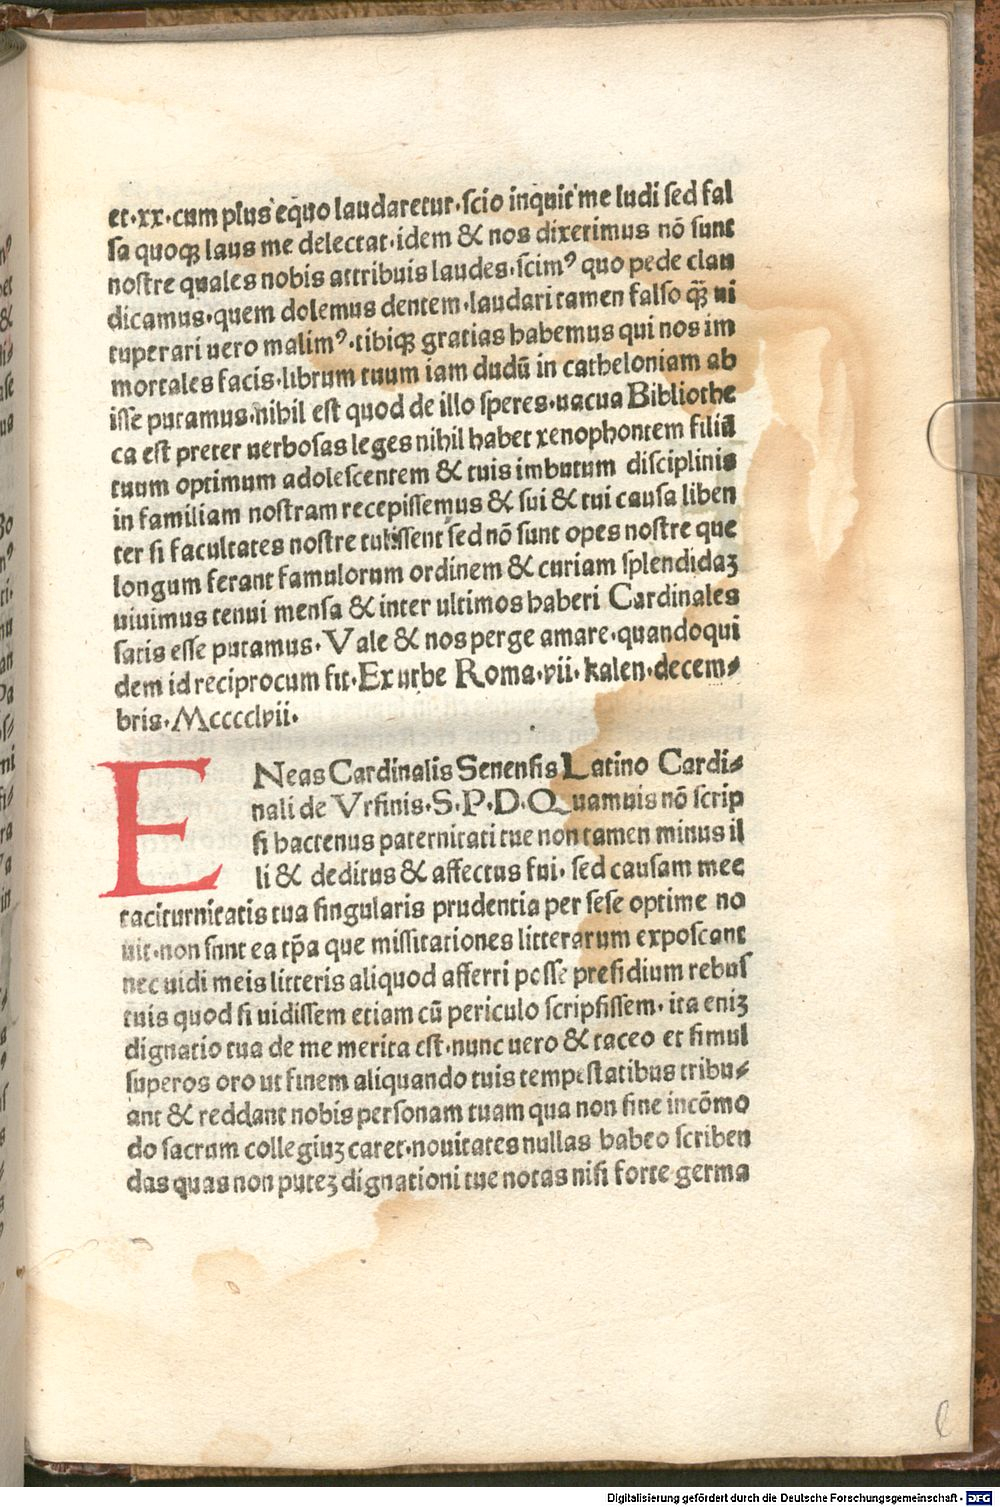 et·xx·cum plus equo laudaretur·scio inquit me ludi sed fal
sa quoqꝫ laus me delectat·idem & nos dixerimus nō sunt
nostre quales nobis attribuis laudes·scimꝰ quo pede clau
dicamus·quem dolemus dentem·laudari tamen falso qꝫ̄ ui
tuperari uero malimꝰ·tibiqꝫ gratias habemus qui nos im
mortales facis·librum tuum iam dudū in catheloniam ab
isse putamus·nihil est quod de illo speres·uacua Bibliothe
ca est preter uerbosas leges nihil habet xenophontem filiū
tuum optimum adolescentem & tuis imbutum disciplinis
in familiam nostram recepissemus & sui & tui causa liben
ter si facultates nostre tulissent sed nō sunt opes nostre que
longum ferant famulorum ordinem & curiam splendidaꝫ
uiuimus tenui mensa & inter ultimos haberi Cardinales
satis esse putamus· Vale & nos perge amare·quandoqui
dem id reciprocum fit·Ex urbe Roma·vii·kalen·decem⸗
bris·Mcccclvii·
ENeas Cardinalis Senensis Latino Cardi⸗
nali de Vrsinis·S·P·D·Quamuis nō scrip
si hactenus paternitati tue non tamen minus il
li & deditus & affectus fui· sed causam mee
taciturnitatis tua singularis prudentia per sese optime no
uit·non sunt ea tp̄a que missitationes litterarum exposcant
nec uidi meis litteris aliquod afferri posse presidium rebus
tuis quod si uidissem etiam cū periculo scripsissem· ita eniꝫ
dignatio tua de me merita est·nunc uero & taceo et simul
superos oro ut finem aliquando tuis tempestatibus tribu⸗
ant & reddant nobis personam tuam qua non sine incōmo
do sacrum collegiuꝫ caret·nouitates nullas habeo scriben
das quas non puteꝫ dignationi tue notas nisi forte germa
Digitalisierung gefördert durch die Deutsche Forschungsgemeinschaft - DFG